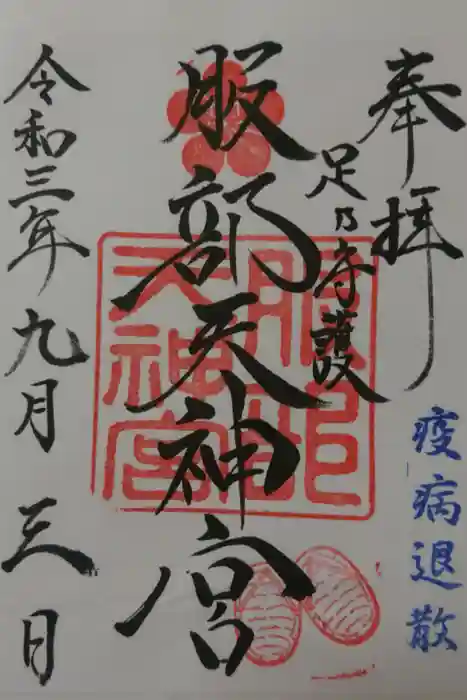 奉拝
足乃守護
疫病退散
服部天神宮
服部天神宮
令和三年九月三日